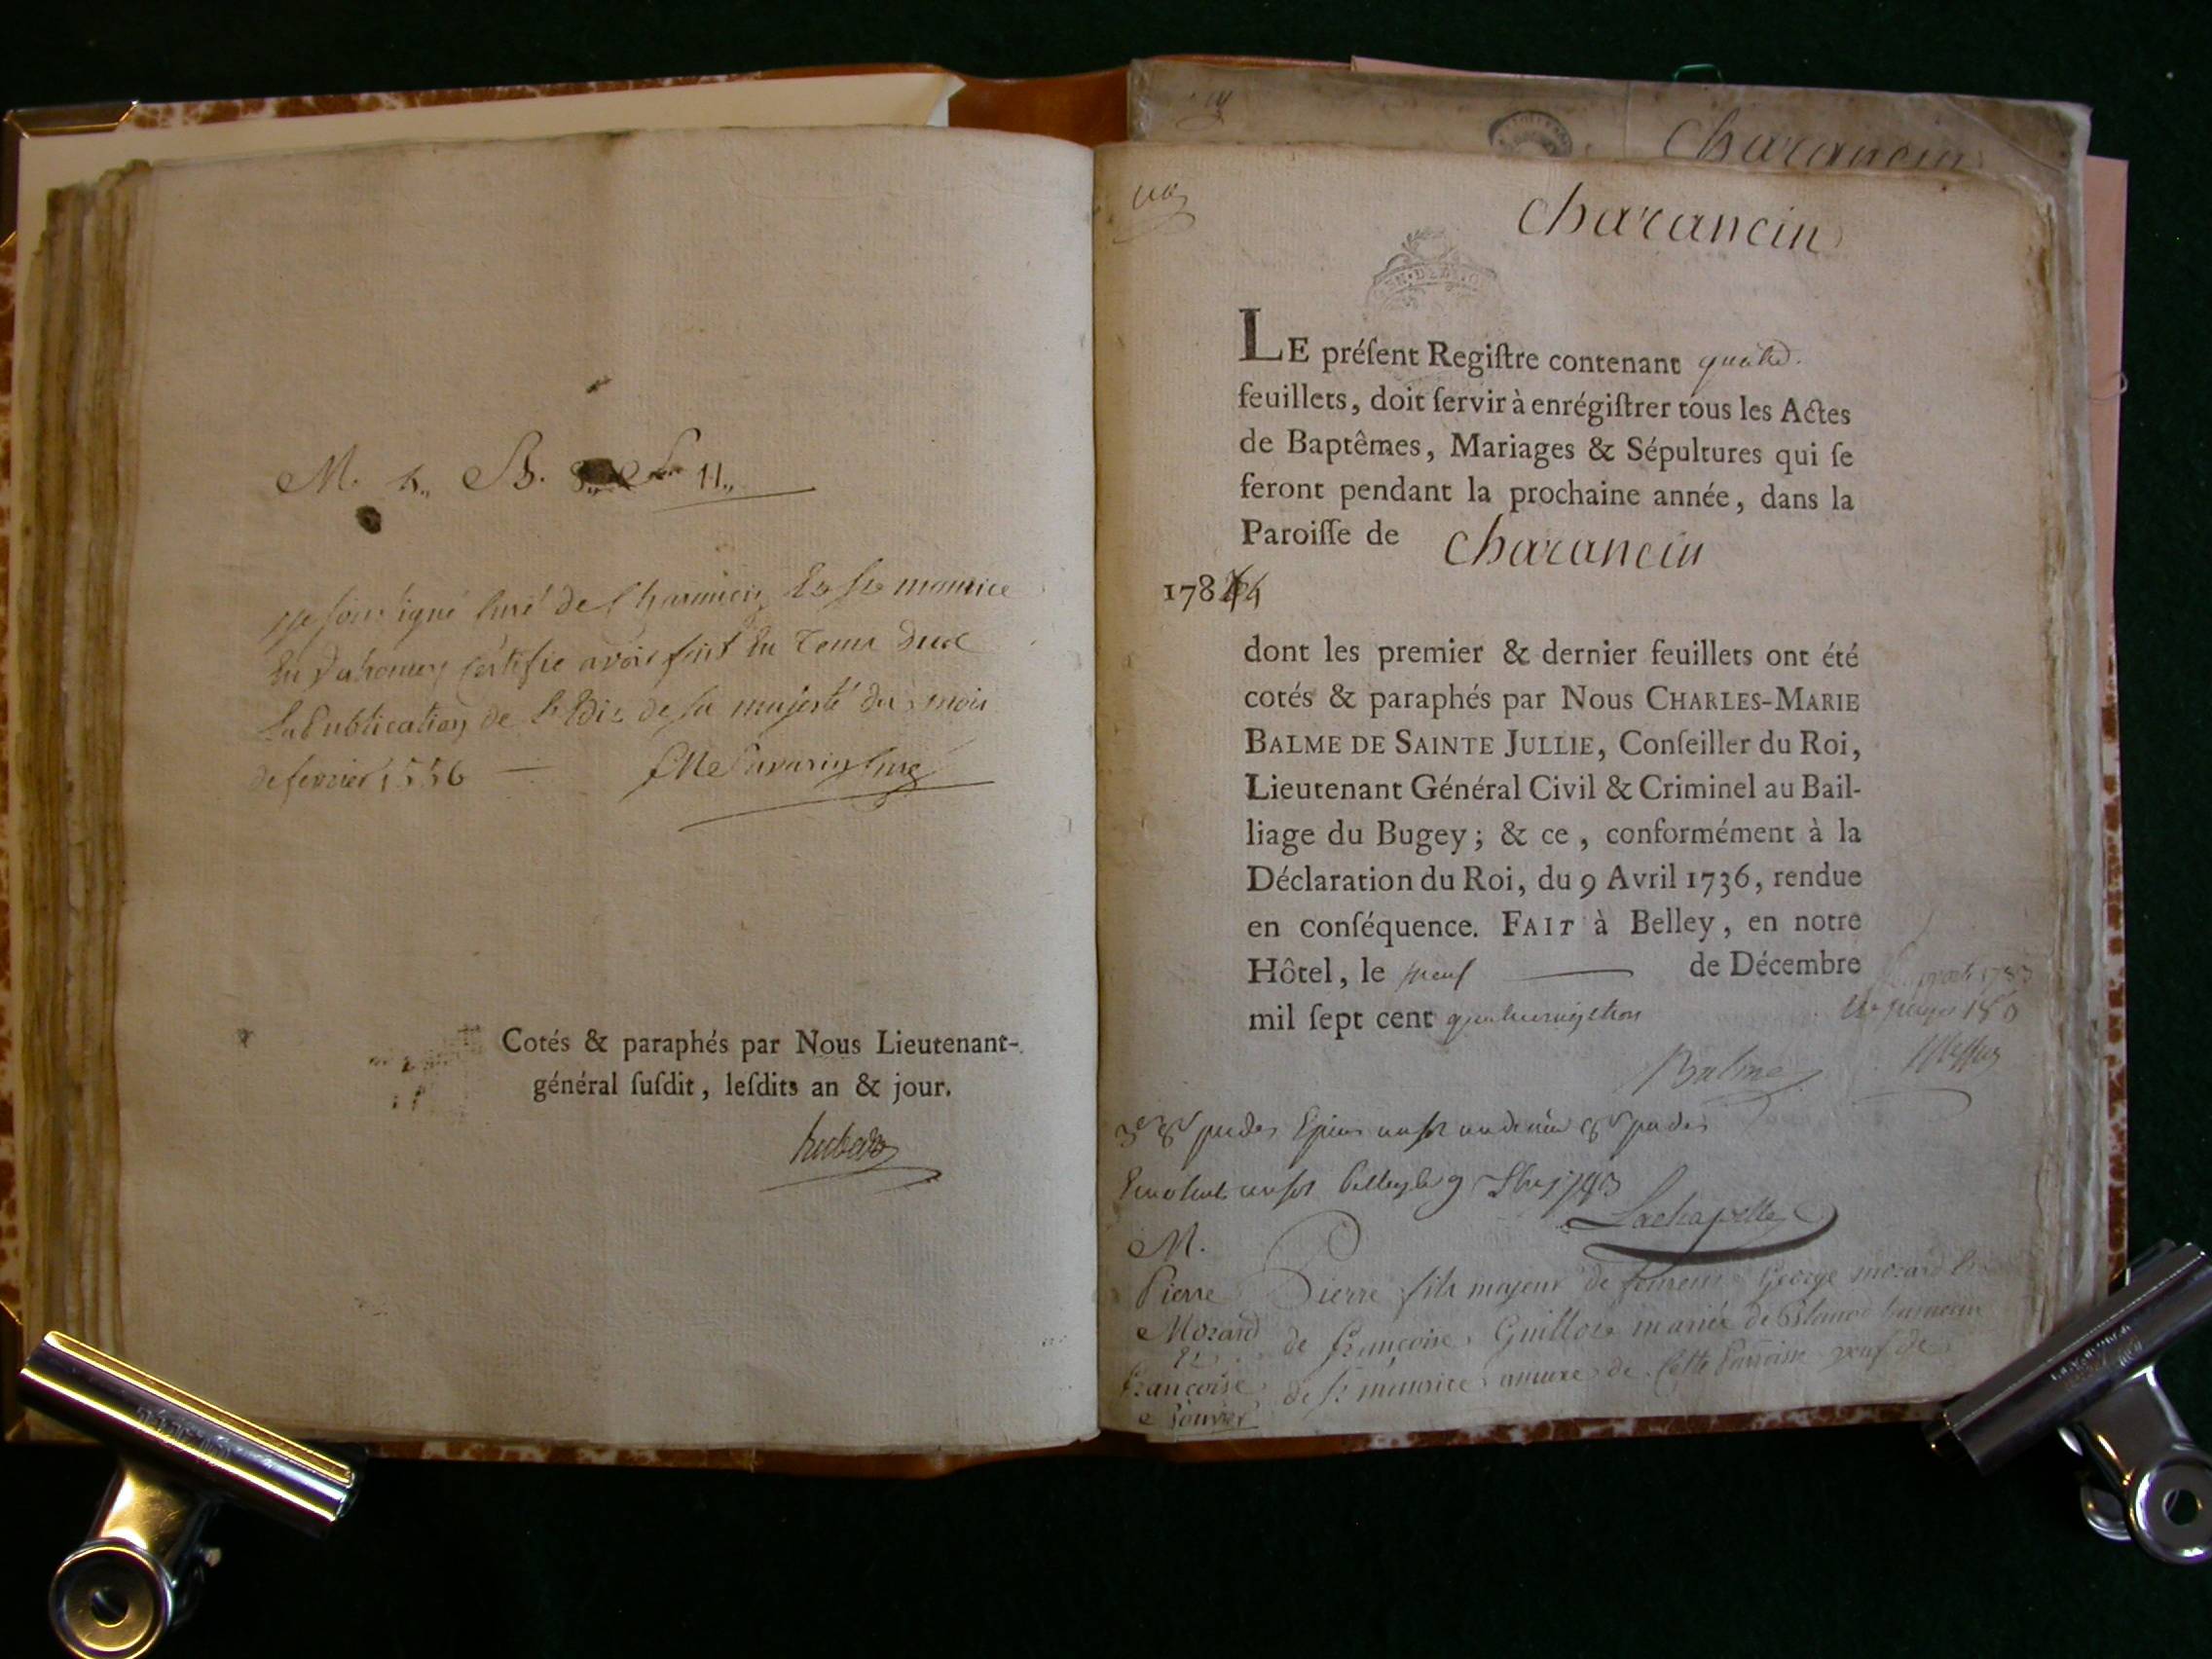 M. 5,, B. 11,,
je soussigné Curé de Charancin Et St maurice
En Valromey Certifie avoir fait En Tems Due
La Publication de L'Edit de sa majesté du mois
de fevrier 1556 Curé
Cotés & paraphés par Nous Lieutenant-
général ſuſdit, leſdits an & jour.
Charancin
Charancin
LE préſent Regiſtre contenant quatre
feuillets, doit ſervir à enrégiſtrer tous les Actes
de Baptêmes, Mariages & Sépultures qui ſe
feront pendant la prochaine année, dans la
Paroiſſe de Charancin
1784
dont les premier & dernier feuillets ont été
cotés & paraphés par Nous CHARLES-MARIE
BALME DE SAINTE JULLIE, Conſeiller du Roi,
Lieutenant Général Civil & Criminel au Bail-
liage du Bugey ; & ce, conformément à la
Déclaration du Roi, du 9 Avril 1736, rendue
en conſéquence. FAIT à Belley, en notre
Hôtel, le neuf de Décembre
mil ſept cent quatrevingttrois
Balme
Lachapelle
M.
Pierre
Morard
Et
françoise
Jouvar
Pierre fils majeur de George morard Et
de françoise Guillot mariés de hameau
de St maurice annexe de Cette Parroisse veuf de